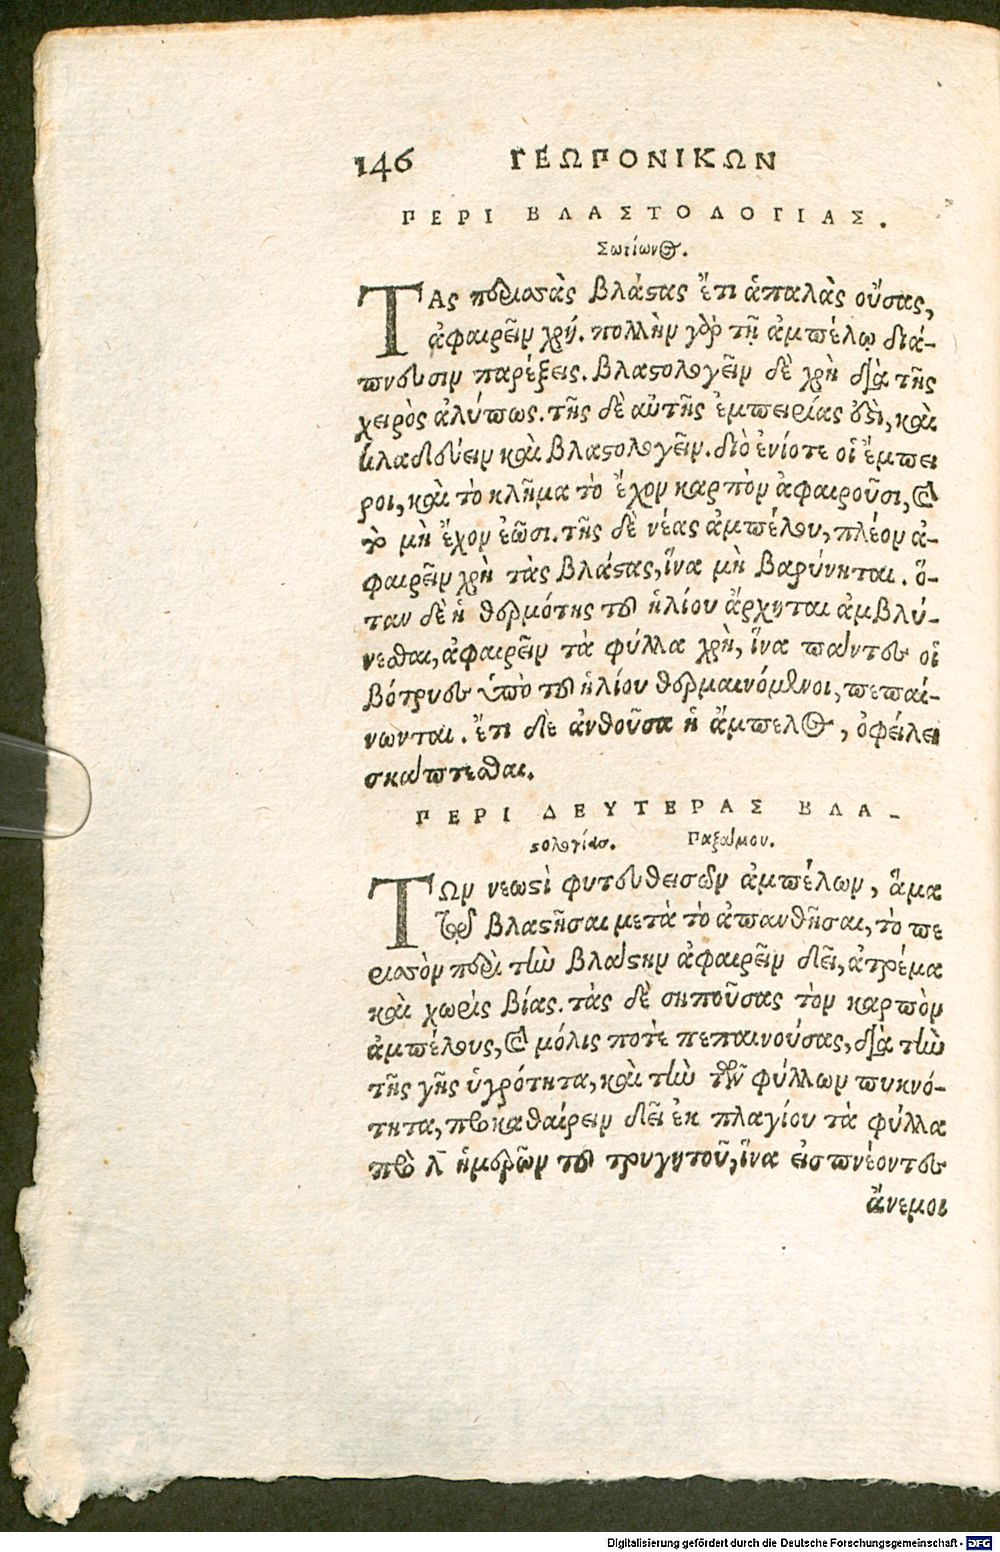 146 ΓΕΩΠΟΝΙΚΩΝ
ΠΕΡΙ ΒΛΑΣΤΟΛΟΓΙΑΣ.
Σωτίωνος.
ΤΑς περισσὰς βλάϛας ἔτι ἁπαλὰς οὔσας,
ἀφαιρεῖν χρή. πολλὴν γὰρ τῇ ἀμπέλῳ διά-
πνευσιν παρέξεις. βλαϛολογεῖν δὲ χρὴ διὰ τῆς
χειρὸς ἀλύπως. τῆς δὲ αὐτῆς ἐμπειρίας ὅϛὶ, καὶ
κλαδεύειν καὶ βλαϛολογεῖν. διὸ ἐνίοτε οἱ ἔμπει
ροι, καὶ τὸ κλῆμα τὸ ἔχον καρπὸν ἀφαιροῦσι, καὶ
τὸ μὴ ἔχον ἐῶσι. τῆς δὲ νέας ἀμπέλου, πλέον ἀ-
φαιρεῖν χρὴ τὰς βλάϛας, ἵνα μὴ βαρύνηται. ὅ-
ταν δὲ ἡ θερμότης τοῦ ἡλίου ἄρχηται ἀμβλύ-
νεσθαι, ἀφαιρεῖν τὰ φύλλα χρὴ, ἵνα πάντες οἱ
βότρυες ὑπὸ τοῦ ἡλίου θερμαινόμενοι, πεπαί-
νωνται. ἔτι δὲ ἀνθοῦσα ἡ ἄμπελος, ὀφείλει
σκάπτεσθαι.
ΠΕΡΙ ΔΕΥΤΕΡΑΣ ΒΛΑ-
ϛολογίας. Παξάμου.
ΤΩν νεωϛὶ φυτευθεισῶν ἀμπέλων, ἅμα
τῷ βλαϛῆσαι μετὰ τὸ ἀπανθῆσαι, τὸ πε
ρισσὸν περὶ τὴν βλάϛην ἀφαιρεῖν δεῖ, ἀτρέμα
καὶ χωρὶς βίας. τὰς δὲ σηπούσας τὸν καρπὸν
ἀμπέλους, καὶ μόλις ποτὲ πεπαινούσας, διὰ τὴν
τῆς γῆς ὑγρότητα, καὶ τὴν τῶν φύλλων πυκνό-
τητα, προκαθαίρειν δεῖ ἐκ πλαγίου τὰ φύλλα
πρὸ λ ἡμερῶν τοῦ τρυγητοῦ, ἵνα εἰσπνέοντες
ἄνεμοι
Digitalisierung gefördert durch die Deutsche Forschungsgemeinschaft - DFG